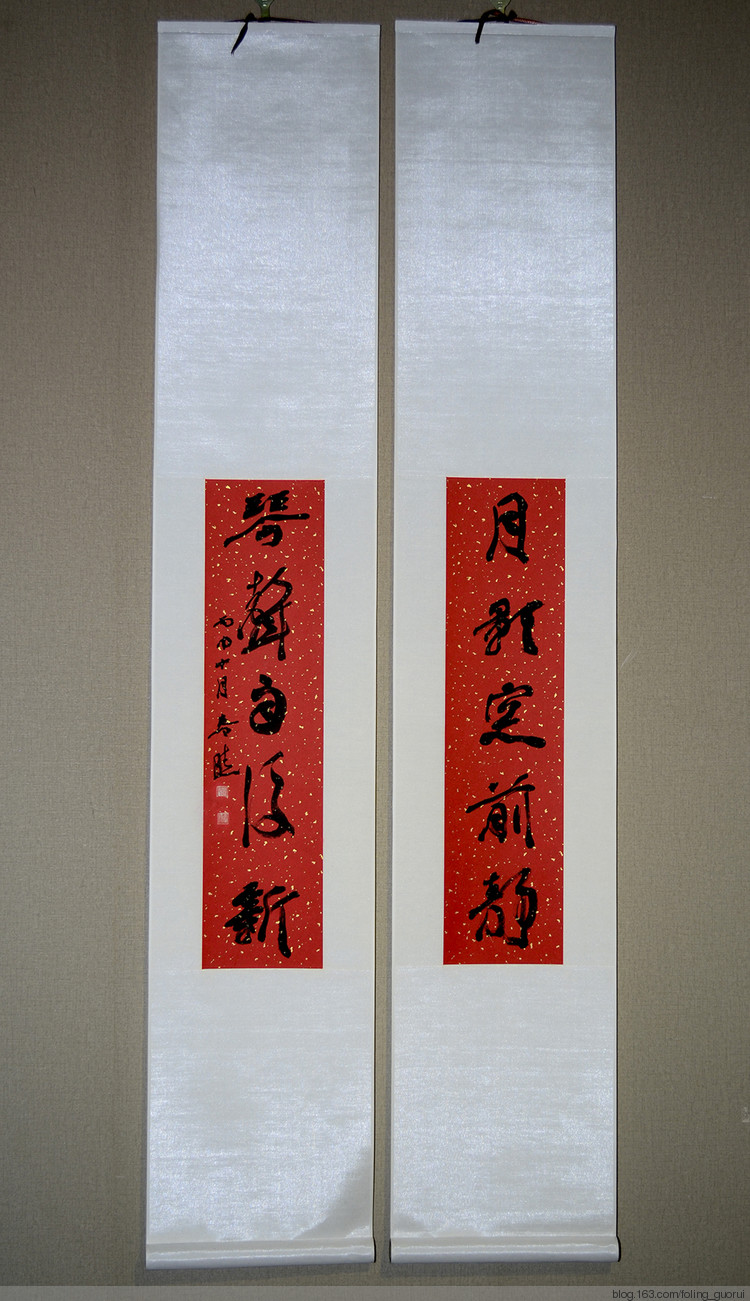 月影窓前靜
琴聲雨後新
丙申十月
blog.163.com/foling_guorui